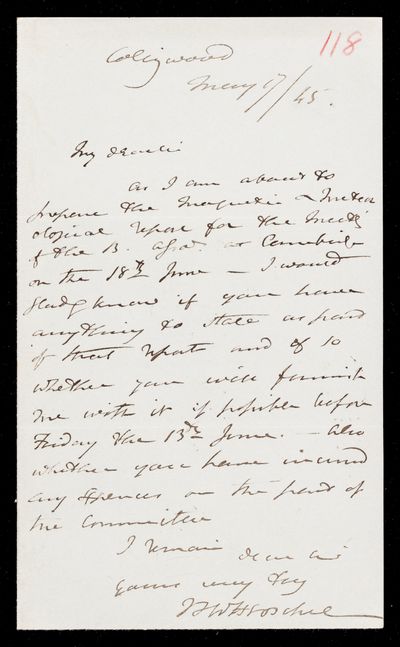 118
Collingwood
May 17/45.
My dear Sir
as I am about to
prepare the Magnetic & Meteor
ological report for the Meetg
of the B. Assn. at Cambridge
on the 18th June – I would
gladly know if you have
anything to state as part
of that report and if so
whether you will furnish
me with it if possible before
Friday the 13th June. – also
whether you have incurred
any expences on the part of
the Committee
I remain dear Sir
yours very truly
JFWHerschel